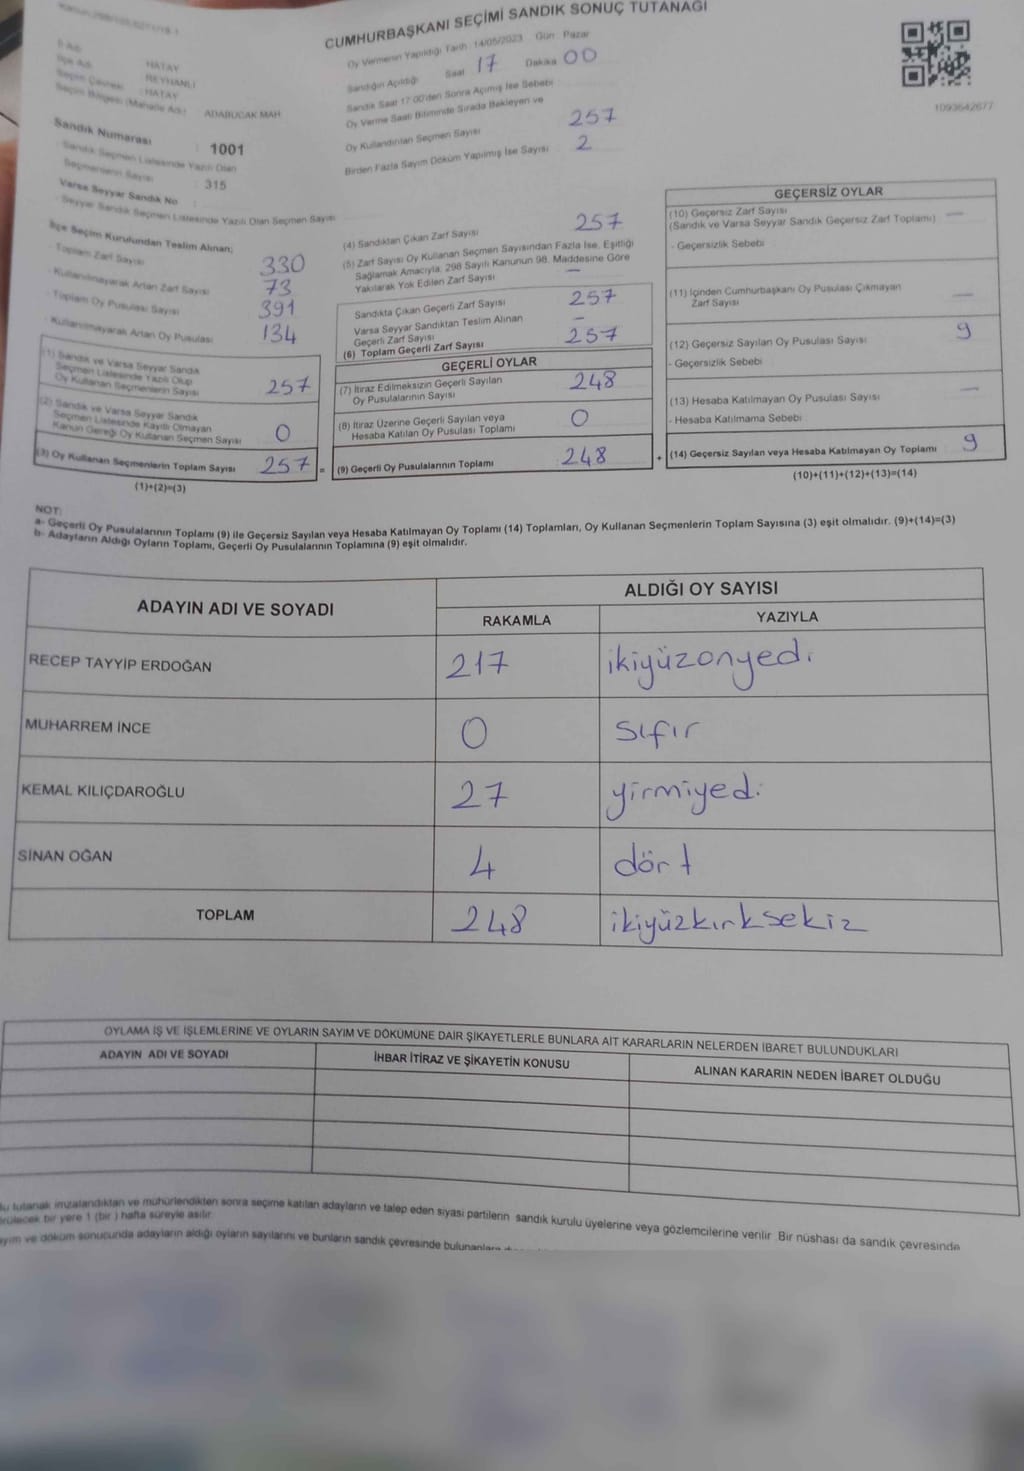 CUMHURBAŞKANI SEÇİMİ SANDIK SONUÇ TUTANAĞI
Oy Vermenin Yapıldığı Tarih : 14/05/2023 Gün : Pazar
Sandığın Açıldığı Saat 17 Dakika 00
Sandık Saat 17:00'den Sonra Açılmış İse Sebebi
Oy Verme Saati Bitiminde Sırada Bekleyen ve
Oy Kullandırılan Seçmen Sayısı 257
Birden Fazla Sayım Döküm Yapılmış İse Sayısı 2
1093642677
İl Adı : HATAY
İlçe Adı : REYHANLI
Seçim Çevresi : HATAY
Seçim Bölgesi (Mahalle Adı) : ADABUCAK MAH
Sandık Numarası : 1001
Sandık Seçmen Listesinde Yazılı Olan
Seçmenlerin Sayısı : 315
Varsa Seyyar Sandık No :
Seyyar Sandık Seçmen Listesinde Yazılı Olan Seçmen Sayısı
İlçe Seçim Kurulundan Teslim Alınan;
- Toplam Zarf Sayısı 330
- Kullanılmayarak Artan Zarf Sayısı 73
- Toplam Oy Pusulası Sayısı 391
- Kullanılmayarak Artan Oy Pusulası 134
(1) Sandık ve Varsa Seyyar Sandık
Seçmen Listesinde Yazılı Olup
Oy Kullanan Seçmenlerin Sayısı 257
(2) Sandık ve Varsa Seyyar Sandık
Seçmen Listesinde Kayıtlı Olmayan
Kanun Gereği Oy Kullanan Seçmen Sayısı 0
(3) Oy Kullanan Seçmenlerin Toplam Sayısı 257 =
(1)+(2)=(3)
(4) Sandıktan Çıkan Zarf Sayısı 257
(5) Zarf Sayısı Oy Kullanan Seçmen Sayısından Fazla İse, Eşitliği
Sağlamak Amacıyla, 298 Sayılı Kanunun 98. Maddesine Göre
Yakılarak Yok Edilen Zarf Sayısı —
Sandıkta Çıkan Geçerli Zarf Sayısı 257
Varsa Seyyar Sandıktan Teslim Alınan
Geçerli Zarf Sayısı —
(6) Toplam Geçerli Zarf Sayısı 257
GEÇERLİ OYLAR
(7) İtiraz Edilmeksizin Geçerli Sayılan
Oy Pusulalarının Sayısı 248
(8) İtiraz Üzerine Geçerli Sayılan veya
Hesaba Katılan Oy Pusulası Toplamı 0
(9) Geçerli Oy Pusulalarının Toplamı 248 +
GEÇERSİZ OYLAR
(10) Geçersiz Zarf Sayısı
(Sandık ve Varsa Seyyar Sandık Geçersiz Zarf Toplamı) —
- Geçersizlik Sebebi
(11) İçinden Cumhurbaşkanı Oy Pusulası Çıkmayan
Zarf Sayısı —
(12) Geçersiz Sayılan Oy Pusulası Sayısı 9
- Geçersizlik Sebebi
(13) Hesaba Katılmayan Oy Pusulası Sayısı —
- Hesaba Katılmama Sebebi
(14) Geçersiz Sayılan veya Hesaba Katılmayan Oy Toplamı 9
(10)+(11)+(12)+(13)=(14)
NOT:
a- Geçerli Oy Pusulalarının Toplamı (9) ile Geçersiz Sayılan veya Hesaba Katılmayan Oy Toplamı (14) Toplamları, Oy Kullanan Seçmenlerin Toplam Sayısına (3) eşit olmalıdır. (9)+(14)=(3)
b- Adayların Aldığı Oyların Toplamı, Geçerli Oy Pusulalarının Toplamına (9) eşit olmalıdır.
ADAYIN ADI VE SOYADI ALDIĞI OY SAYISI
RAKAMLA YAZIYLA
RECEP TAYYİP ERDOĞAN 217 ikiyüzonyedi
MUHARREM İNCE 0 sıfır
KEMAL KILIÇDAROĞLU 27 yirmiyedi
SİNAN OĞAN 4 dört
TOPLAM 248 ikiyüzkırksekiz
OYLAMA İŞ VE İŞLEMLERİNE VE OYLARIN SAYIM VE DÖKÜMÜNE DAİR ŞİKAYETLERLE BUNLARA AİT KARARLARIN NELERDEN İBARET BULUNDUKLARI
ADAYIN ADI VE SOYADI İHBAR İTİRAZ VE ŞİKAYETİN KONUSU ALINAN KARARIN NEDEN İBARET OLDUĞU
tutanak imzalandıktan ve mühürlendikten sonra seçime katılan adayların ve talep eden siyasi partilerin sandık kurulu üyelerine veya gözlemcilerine verilir. Bir nüshası da sandık çevresinde
bir yere 1 (bir ) hafta süreyle asılır.
ve döküm sonucunda adayların aldığı oyların sayılarını ve bunların sandık çevresinde